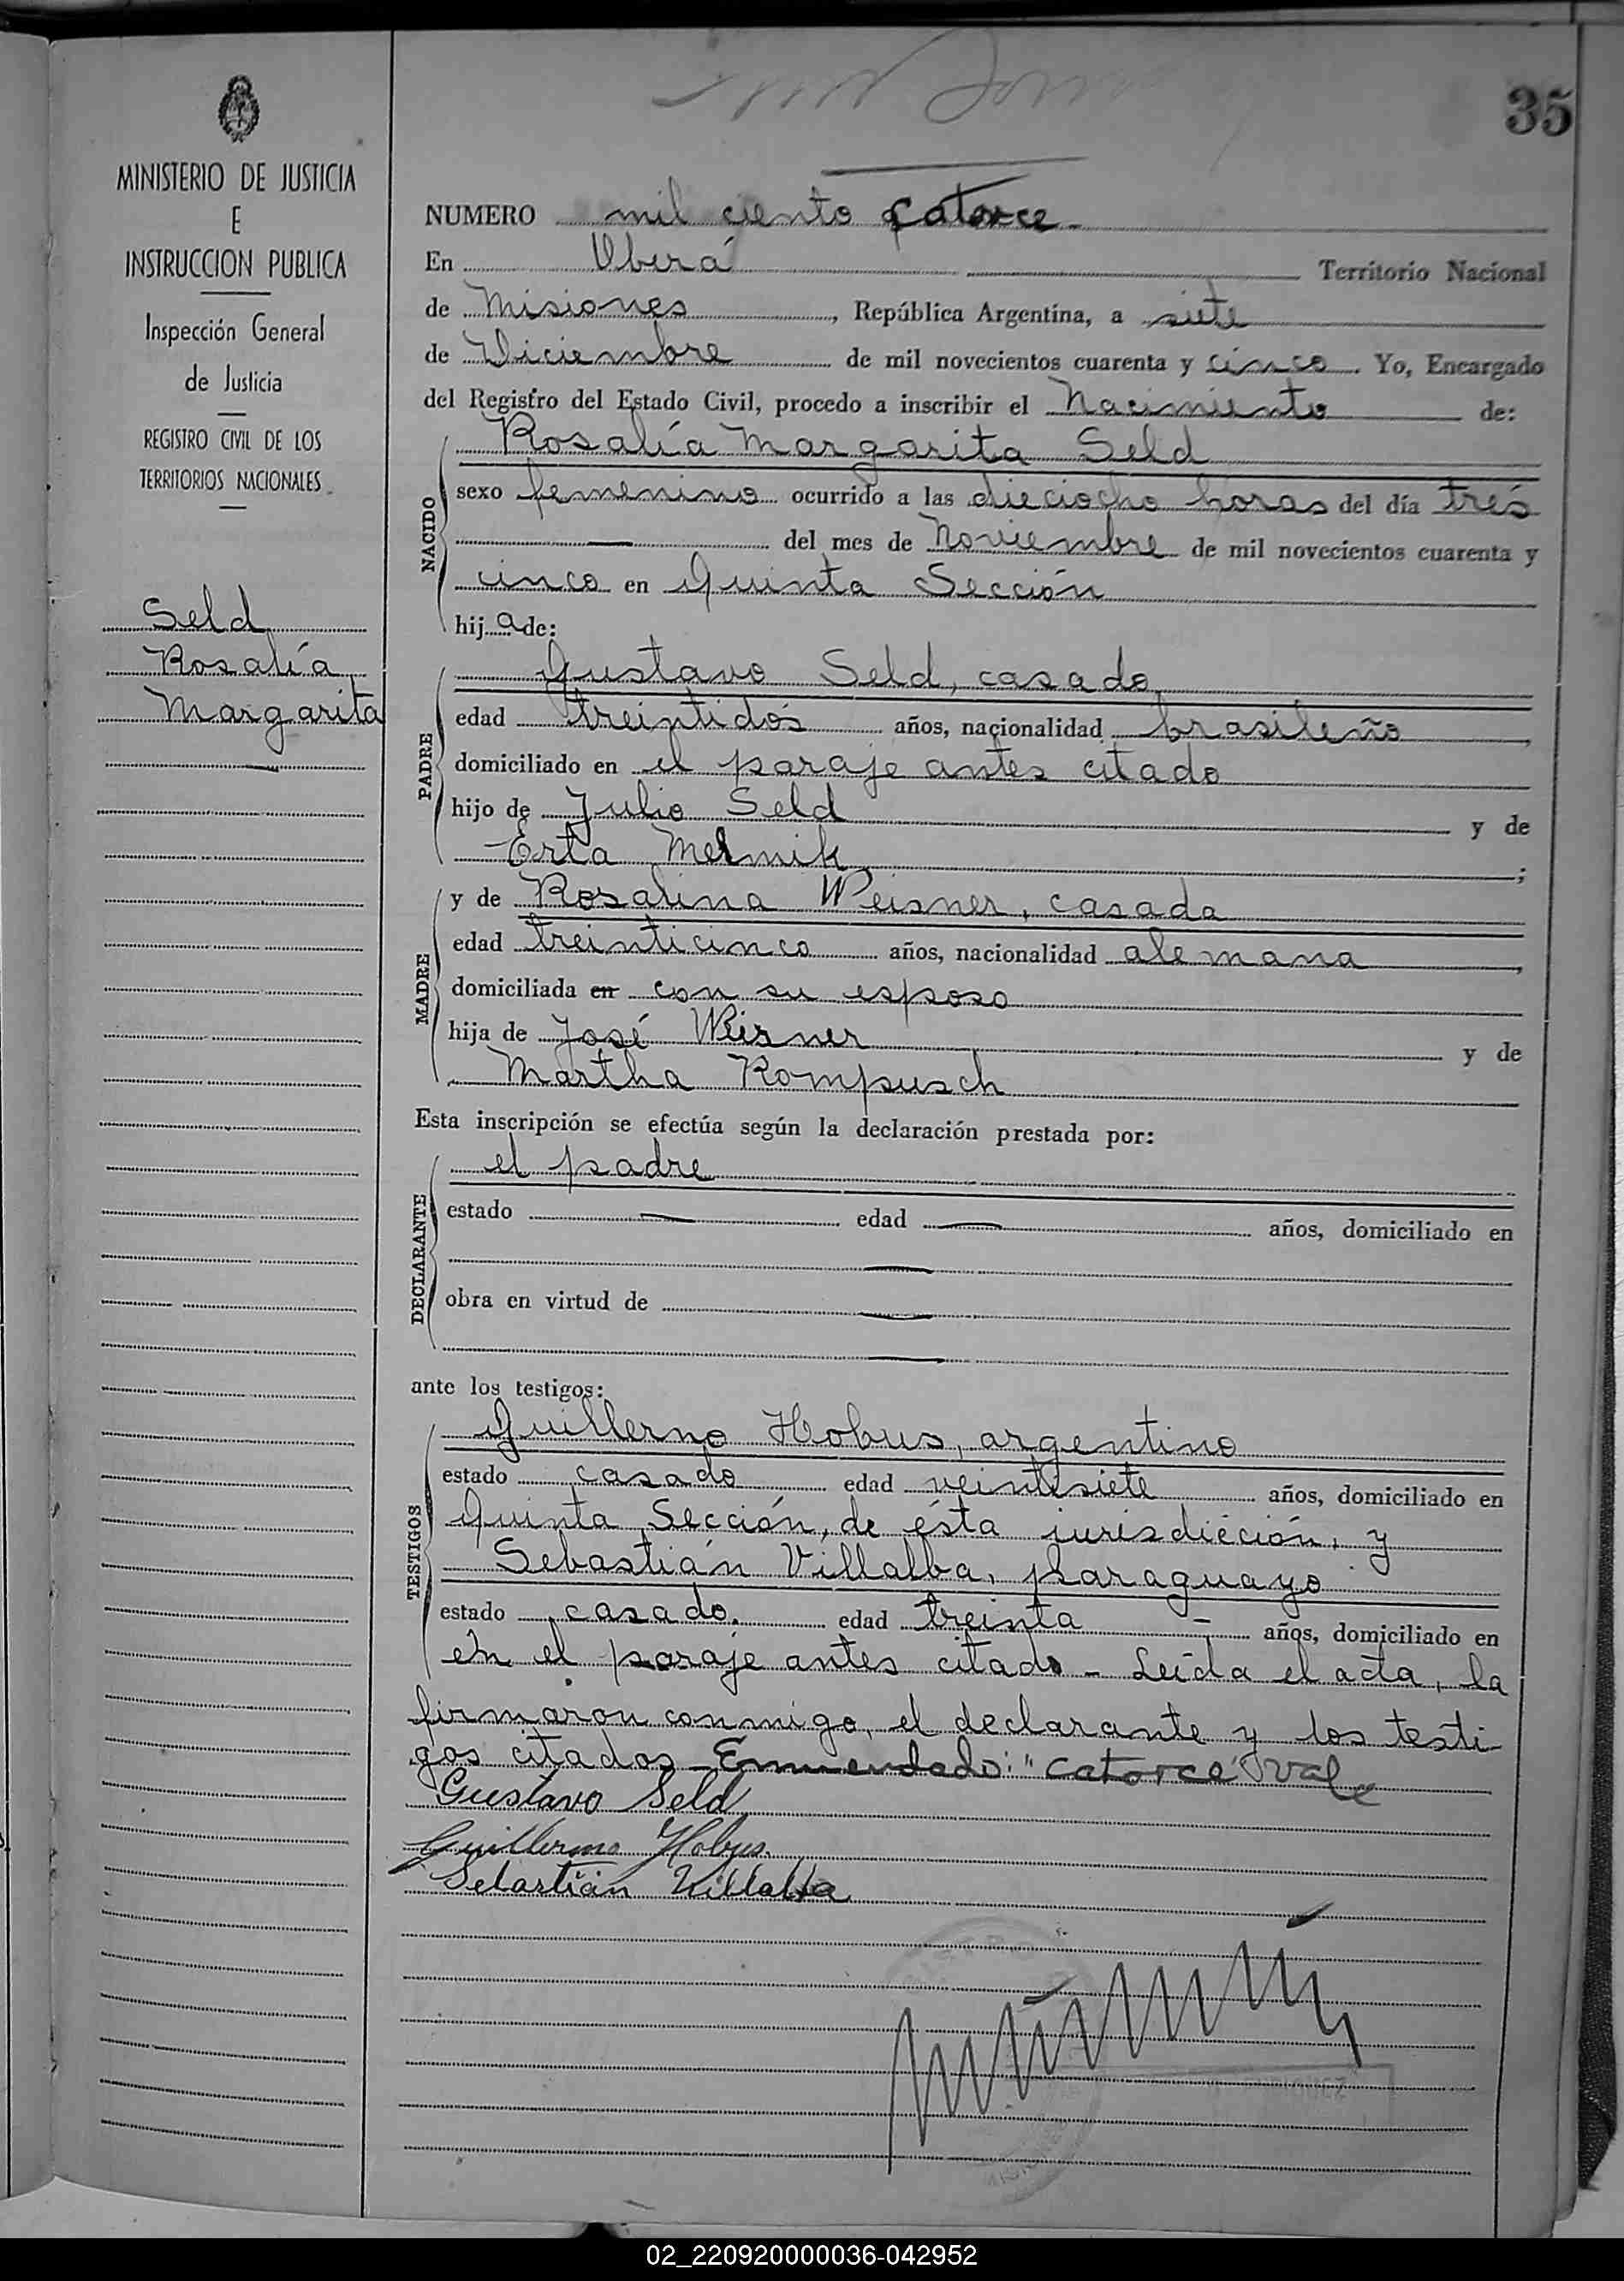 35
MINISTERIO DE JUSTICIA
E
INSTRUCCION PUBLICA
Inspección General
de Justicia
REGISTRO CIVIL DE LOS
TERRITORIOS NACIONALES
Seld
Rosalía
Margarita
NUMERO mil ciento catorce
En Oberá Territorio Nacional
de Misiones, República Argentina, a siete
de Diciembre de mil novecientos cuarenta y cinco. Yo, Encargado
del Registro del Estado Civil, procedo a inscribir el Nacimiento de:
NACIDO
Rosalía Margarita Seld
sexo femenino ocurrido a las dieciocho horas del día tres
— del mes de Noviembre de mil novecientos cuarenta y
cinco en Quinta Sección
hija de:
PADRE
Gustavo Seld, casado
edad treintidós años, nacionalidad brasileño,
domiciliado en el paraje antes citado
hijo de Julio Seld y de
Erta Melmik;
MADRE
y de Rosalina Weisner, casada
edad treinticinco años, nacionalidad alemana,
domiciliada en con su esposo
hija de José Weisner y de
Martha Rompusch
Esta inscripción se efectúa según la declaración prestada por:
DECLARANTE
el padre
estado — edad — años, domiciliado en
—
obra en virtud de —
—
ante los testigos:
TESTIGOS
Guillermo Hobus, argentino
estado casado edad veintisiete años, domiciliado en
Quinta Sección, de ésta jurisdicción, y
Sebastián Villalba, paraguayo
estado casado. edad treinta – años, domiciliado en
en el paraje antes citado – Leída el acta, la
firmaron conmigo, el declarante y los testi-
gos citados – Enmendado: "catorce" Vale
Gustavo Seld
Guillermo Hobus.
Sebastián Villalba
02_220920000036-042952